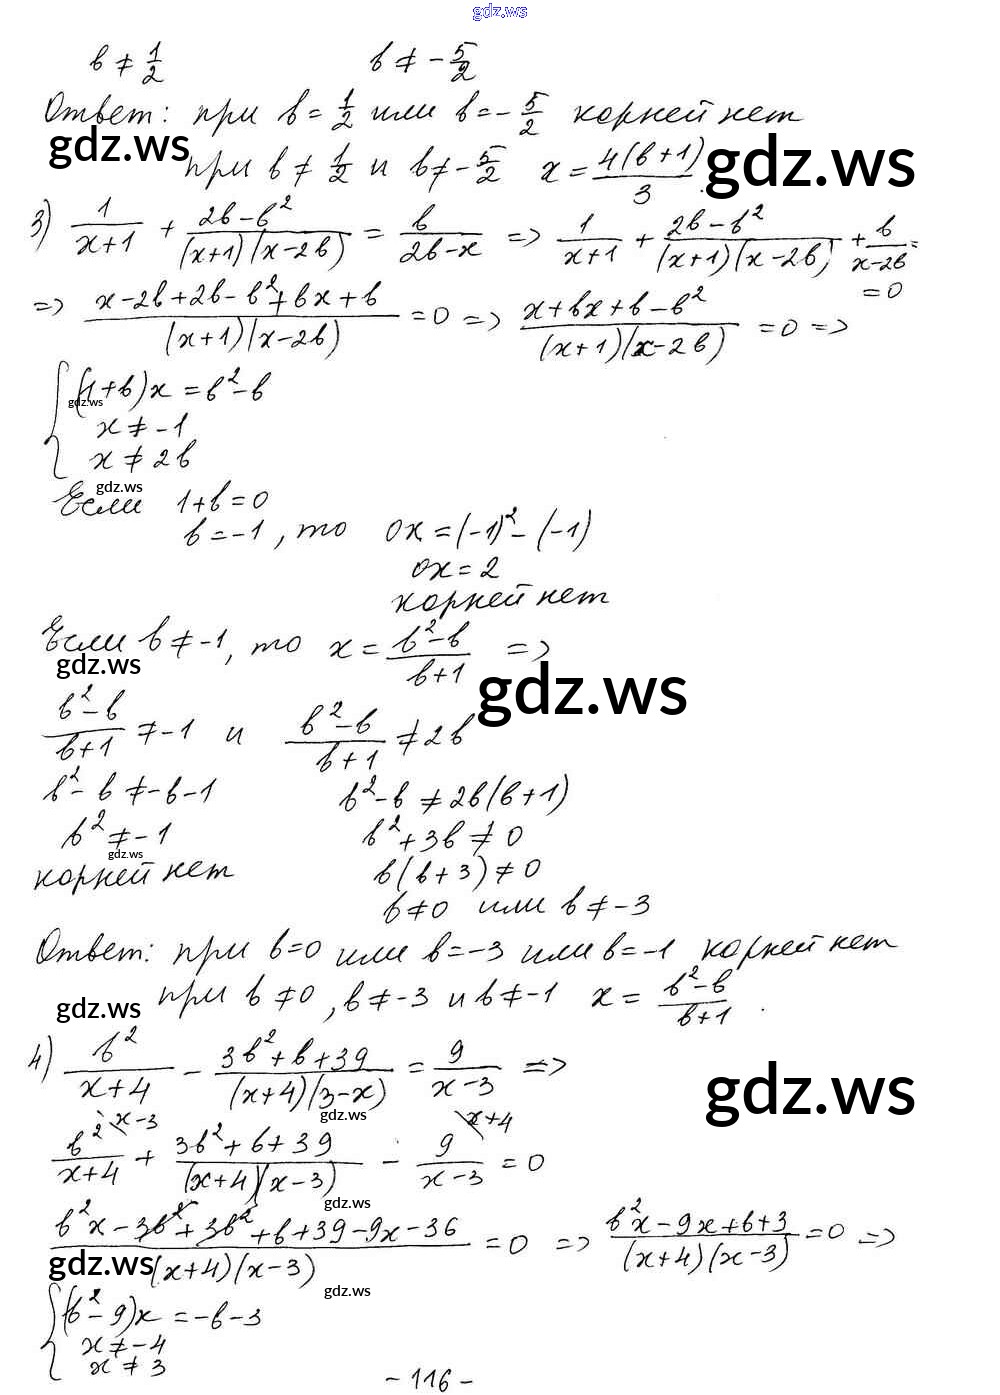 gdz.ws
b ≠ 1/2    b ≠ - 5/2
Ответ: при b = 1/2 или b = - 5/2 корней нет
gdz.ws
при b ≠ 1/2 и b ≠ - 5/2  x = 4(b+1)/3.
gdz.ws
3) 1/(x+1) + (2b-b²)/((x+1)(x-2b)) = b/(2b-x) => 1/(x+1) + (2b-b²)/((x+1)(x-2b)) + b/(x-2b) =
= 0
=> (x-2b+2b-b²+bx+b)/((x+1)(x-2b)) = 0 => (x+bx+b-b²)/((x+1)(x-2b)) = 0 =>
{ (1+b)x = b²-b
gdz.ws
x ≠ -1
x ≠ 2b
gdz.ws
Если 1+b = 0
b = -1, то 0x = (-1)² - (-1)
0x = 2
корней нет
Если b ≠ -1, то x = (b²-b)/(b+1) =>
gdz.ws
gdz.ws
(b²-b)/(b+1) ≠ -1 и (b²-b)/(b+1) ≠ 2b
b²-b ≠ -b-1    b²-b ≠ 2b(b+1)
b² ≠ -1    b²+3b ≠ 0
gdz.ws
корней нет    b(b+3) ≠ 0
b ≠ 0 или b ≠ -3
Ответ: при b=0 или b=-3 или b=-1 корней нет
при b ≠ 0, b ≠ -3 и b ≠ -1  x = (b²-b)/(b+1).
gdz.ws
4) b²/(x+4) - (3b²+b+39)/((x+4)(3-x)) = 9/(x-3) =>
gdz.ws
gdz.ws
b² \x-3/(x+4) + (3b²+b+39)/((x+4)(x-3)) - 9 \x+4/(x-3) = 0
gdz.ws
(b²x-3b²+3b²+b+39-9x-36)/((x+4)(x-3)) = 0 => (b²x-9x+b+3)/((x+4)(x-3)) = 0 =>
gdz.ws
gdz.ws
{ (b²-9)x = -b-3
x ≠ -4
x ≠ 3
- 116 -